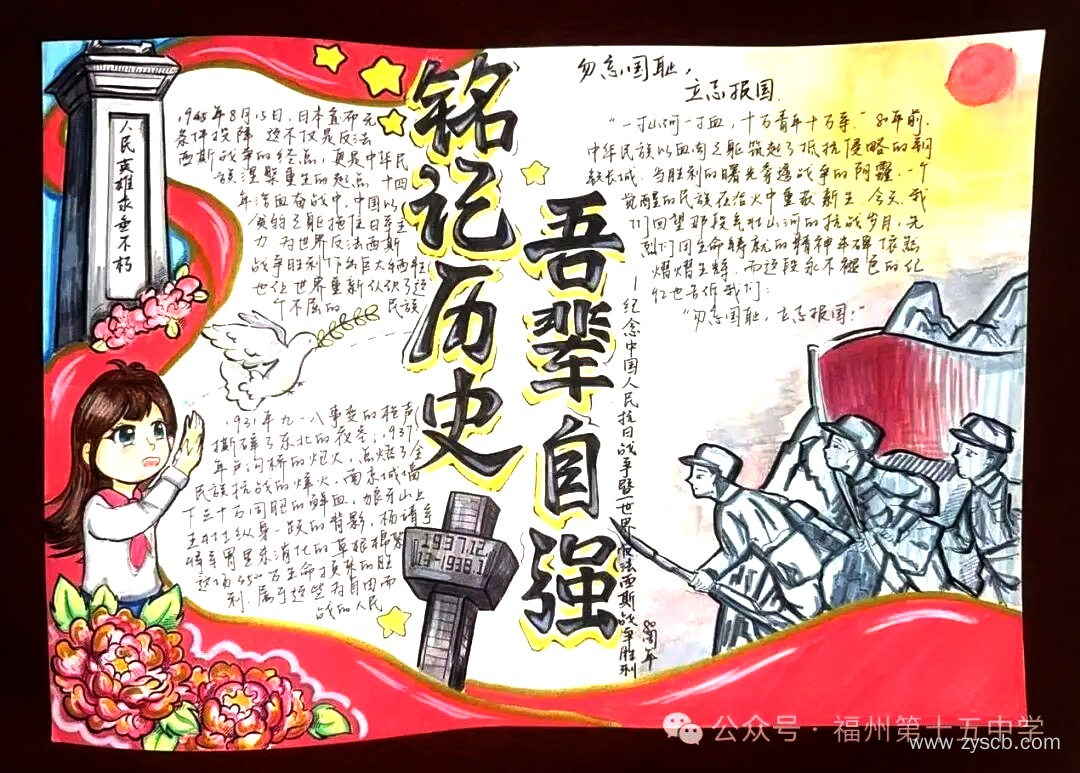 铭记历史
吾辈自强
人民英雄永垂不朽
1945年8月15日，日本宣布无
条件投降 这不仅是反法
西斯战争的终点，更是中华民
族涅槃重生的起点 十四
年浴血奋战中，中国以
之躯拖住日军主
力 为世界反法西斯
战争胜利作出巨大牺牲
也让世界重新认识了这
个不屈的 民族
1931年九一八事变的枪声
撕碎了东北的夜空；1937
年卢沟桥的炮火，点燃了全
民族抗战的烽火。南京城墙
下三十万同胞的鲜血，狼牙山上
五壮士纵身一跃的背影，杨靖宇
将军胃里未消化的草根棉絮
这场3500万生命换来的胜
利，属于这些为自由而
战的人民
1937.12.
13-1938.1
——纪念中国人民抗日战争暨世界反法西斯战争胜利
80周年
勿忘国耻，
立志报国.
“一寸山河一寸血，十万青年十万军.”80年前，
中华民族以血肉之躯筑起了抵抗侵略的钢
铁长城，当胜利的曙光穿透战争的阴霾，一个
觉醒的民族在浴火中重获新生.今天，我
们回望那段气壮山河的抗战岁月，先
烈们用生命铸就的精神丰碑依然
熠熠生辉，而这段永不褪色的记
忆也告诉我们：
“勿忘国耻，立志报国.”
公众号·福州第十五中学
www.zyscb.com